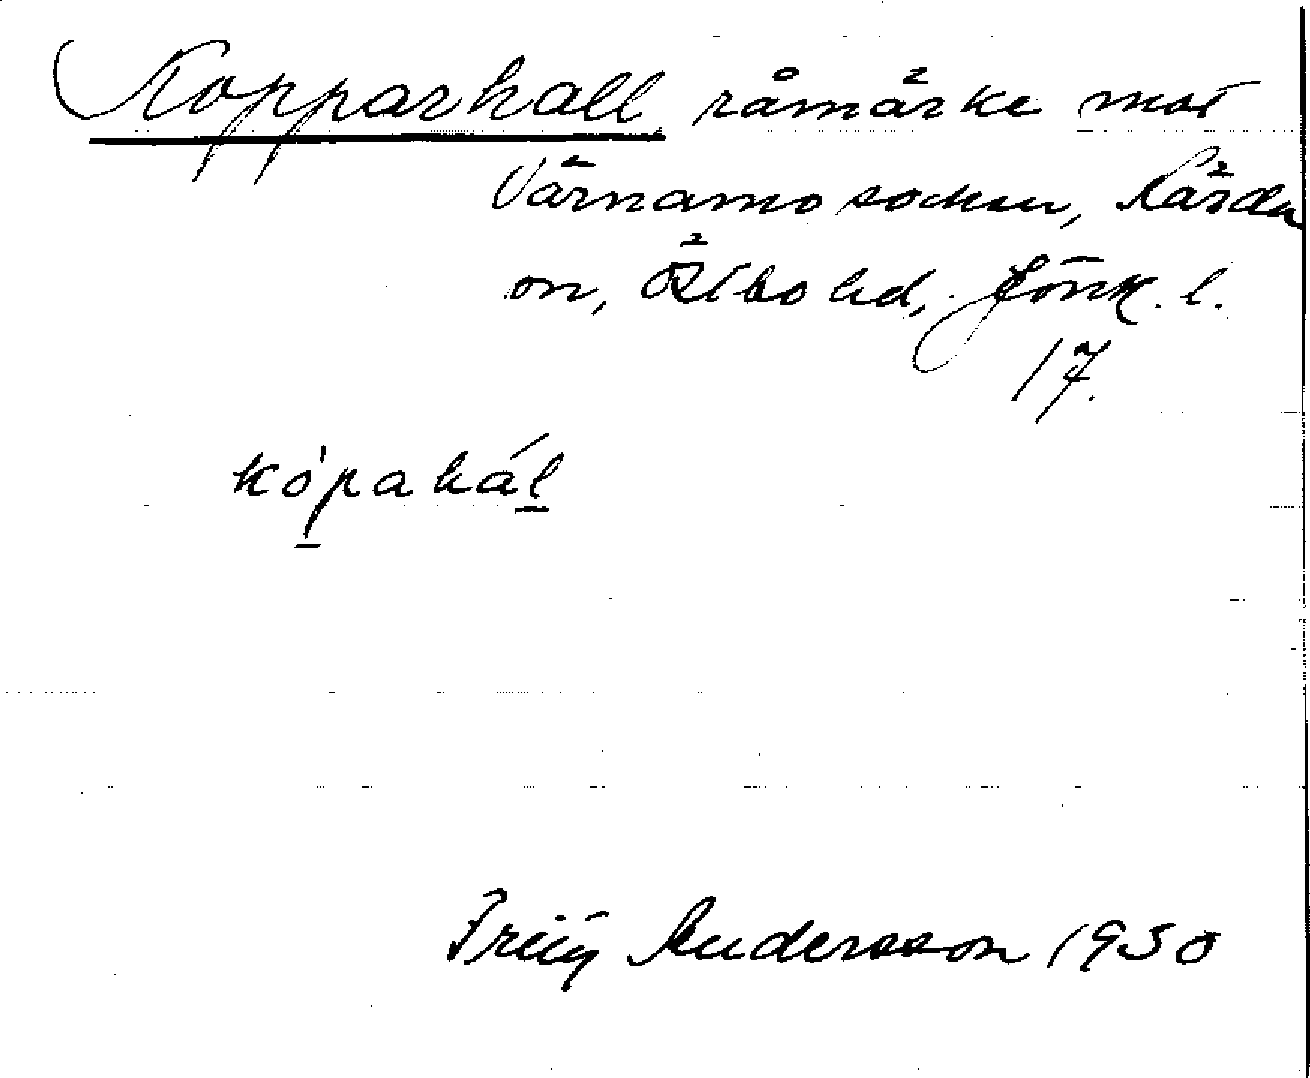 Kopparhall råmärke mot
Värnamo socken, Kärda
sn, Östbo hd, Jönk. l.
17.
kòpahál
Friiy Andersson 1930